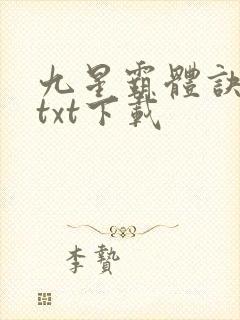 九星霸體訣
txt下載
李贄